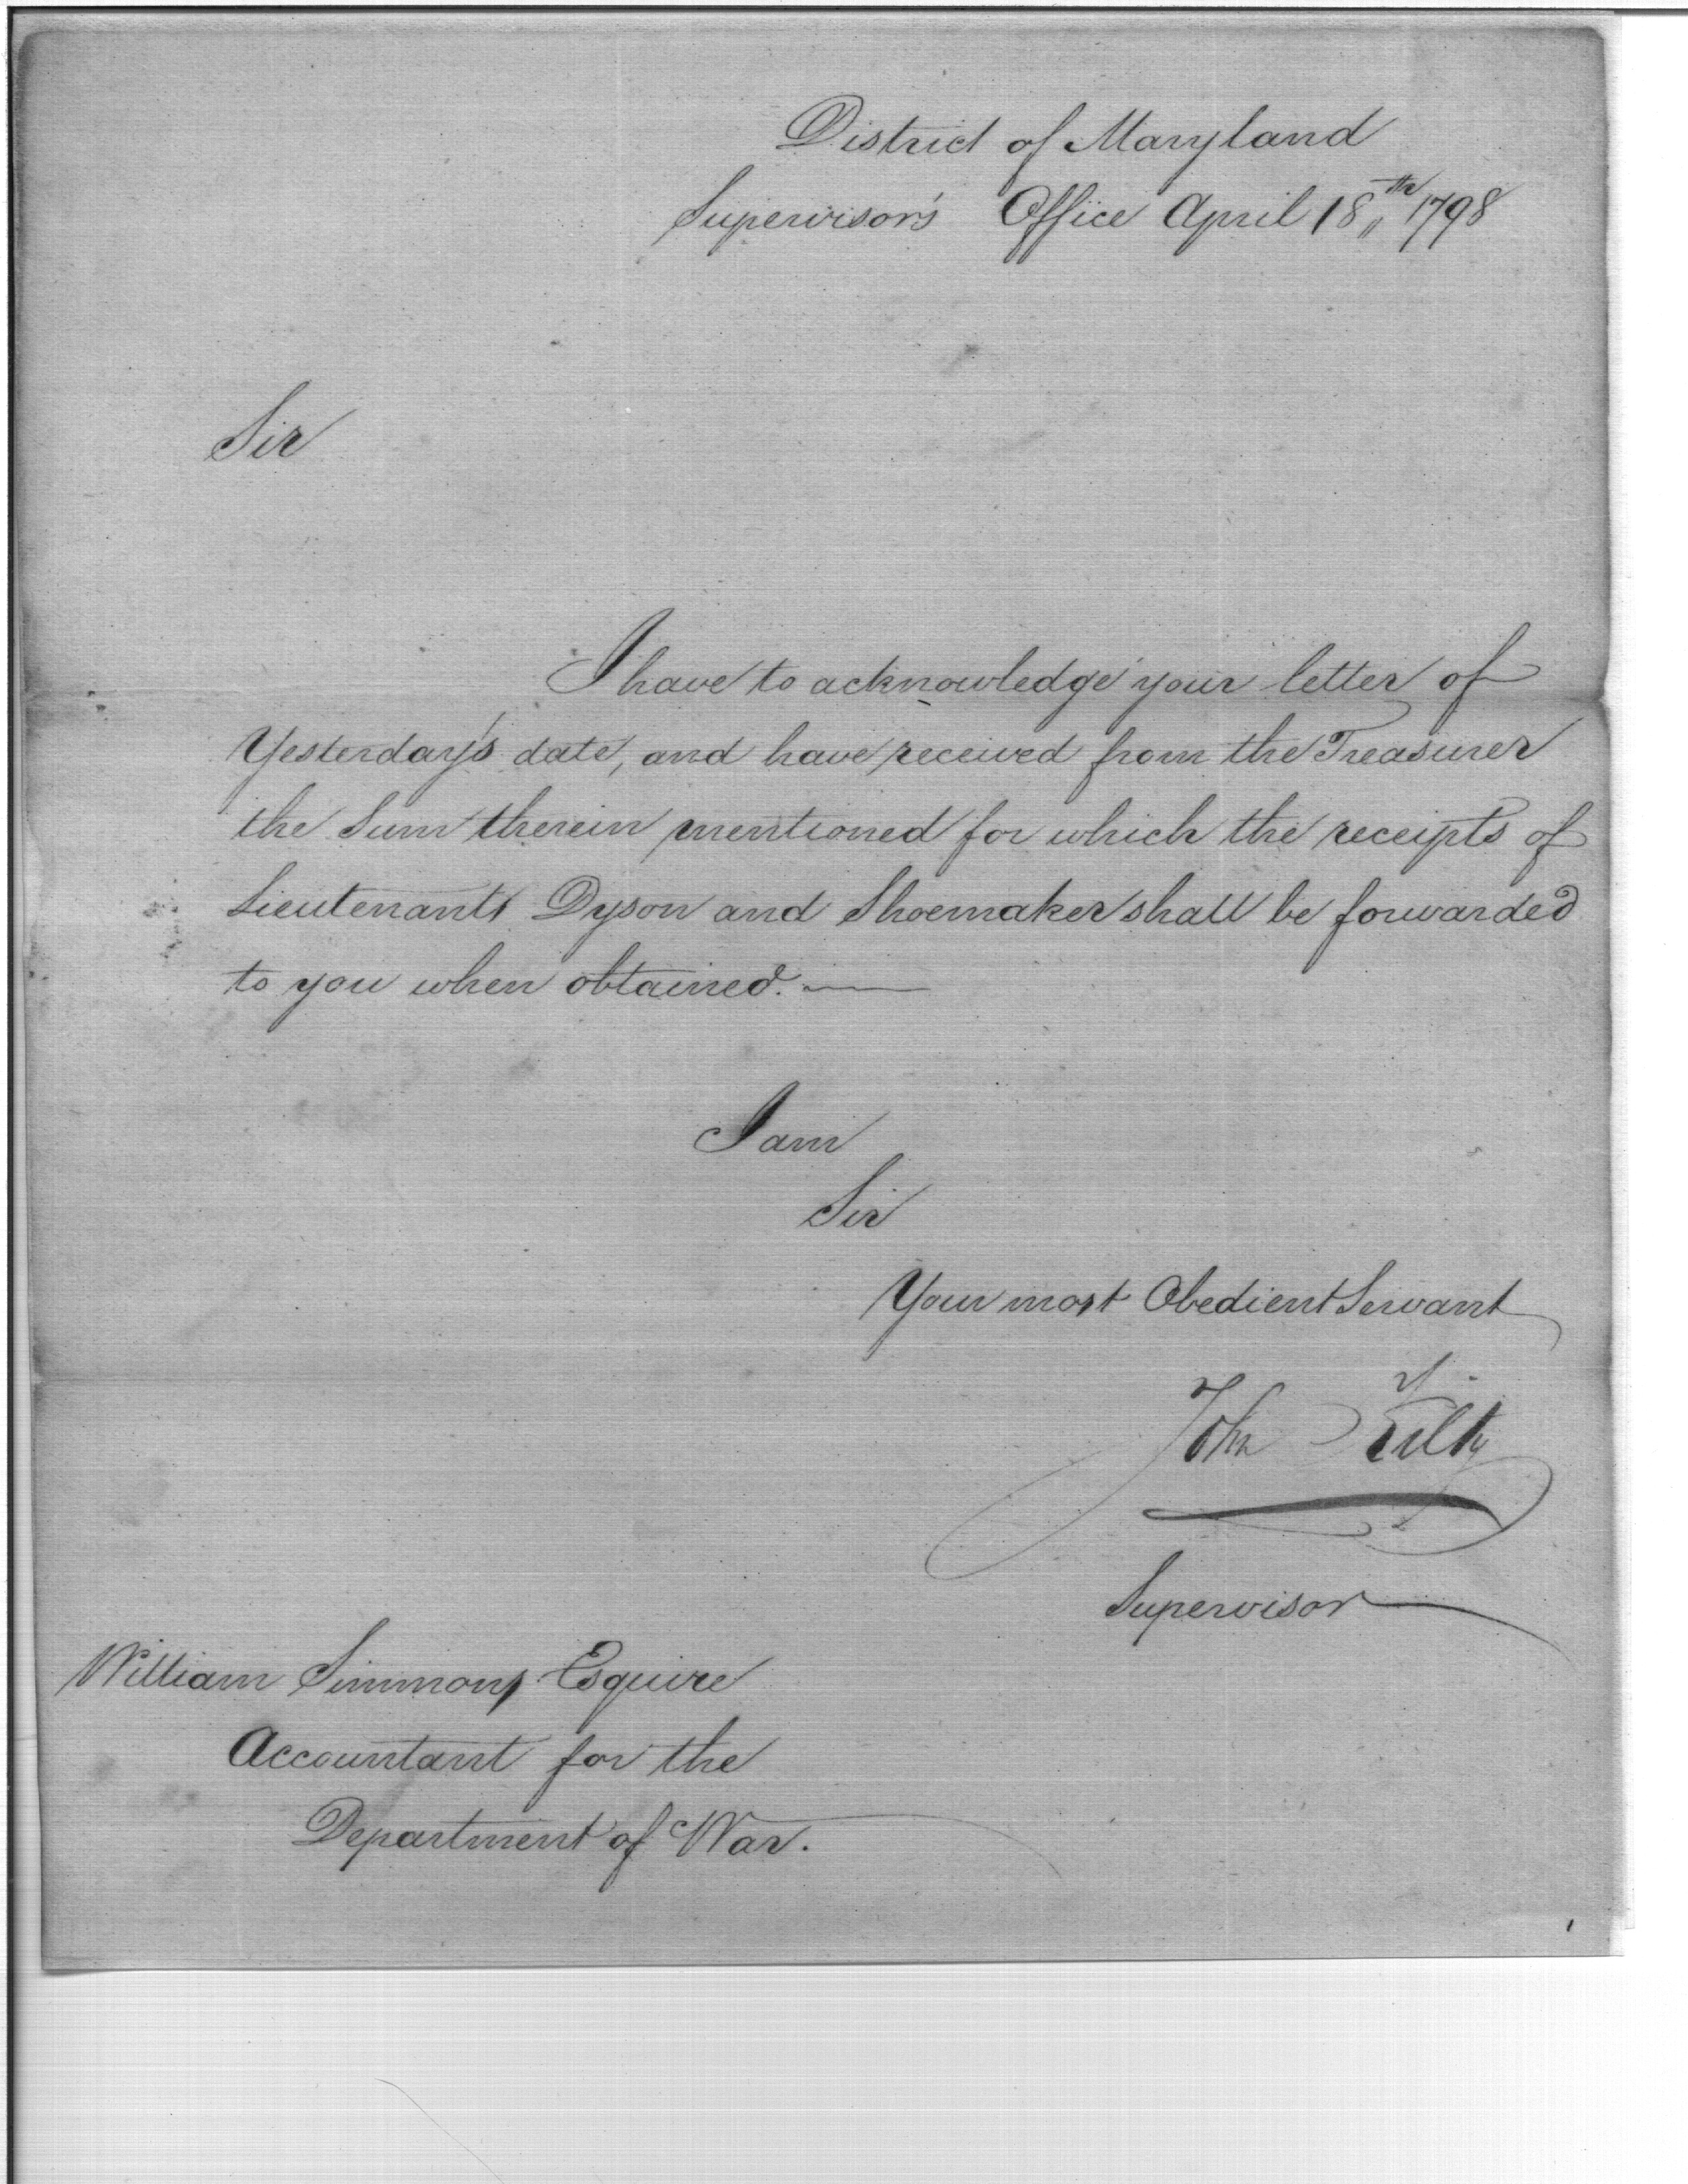 District of Maryland
Supervisor's Office April 18th 1798
Sir
I have to acknowledge your letter of
Yesterday's date, and have received from the Treasurer
the Sum therein mentioned for which the receipts of
Lieutenants Dyson and Shoemaker shall be forwarded
to you when obtained. —
I am
Sir
Your most Obedient Servant
John Kilty
Supervisor
William Simmons Esquire
Accountant for the
Department of War.